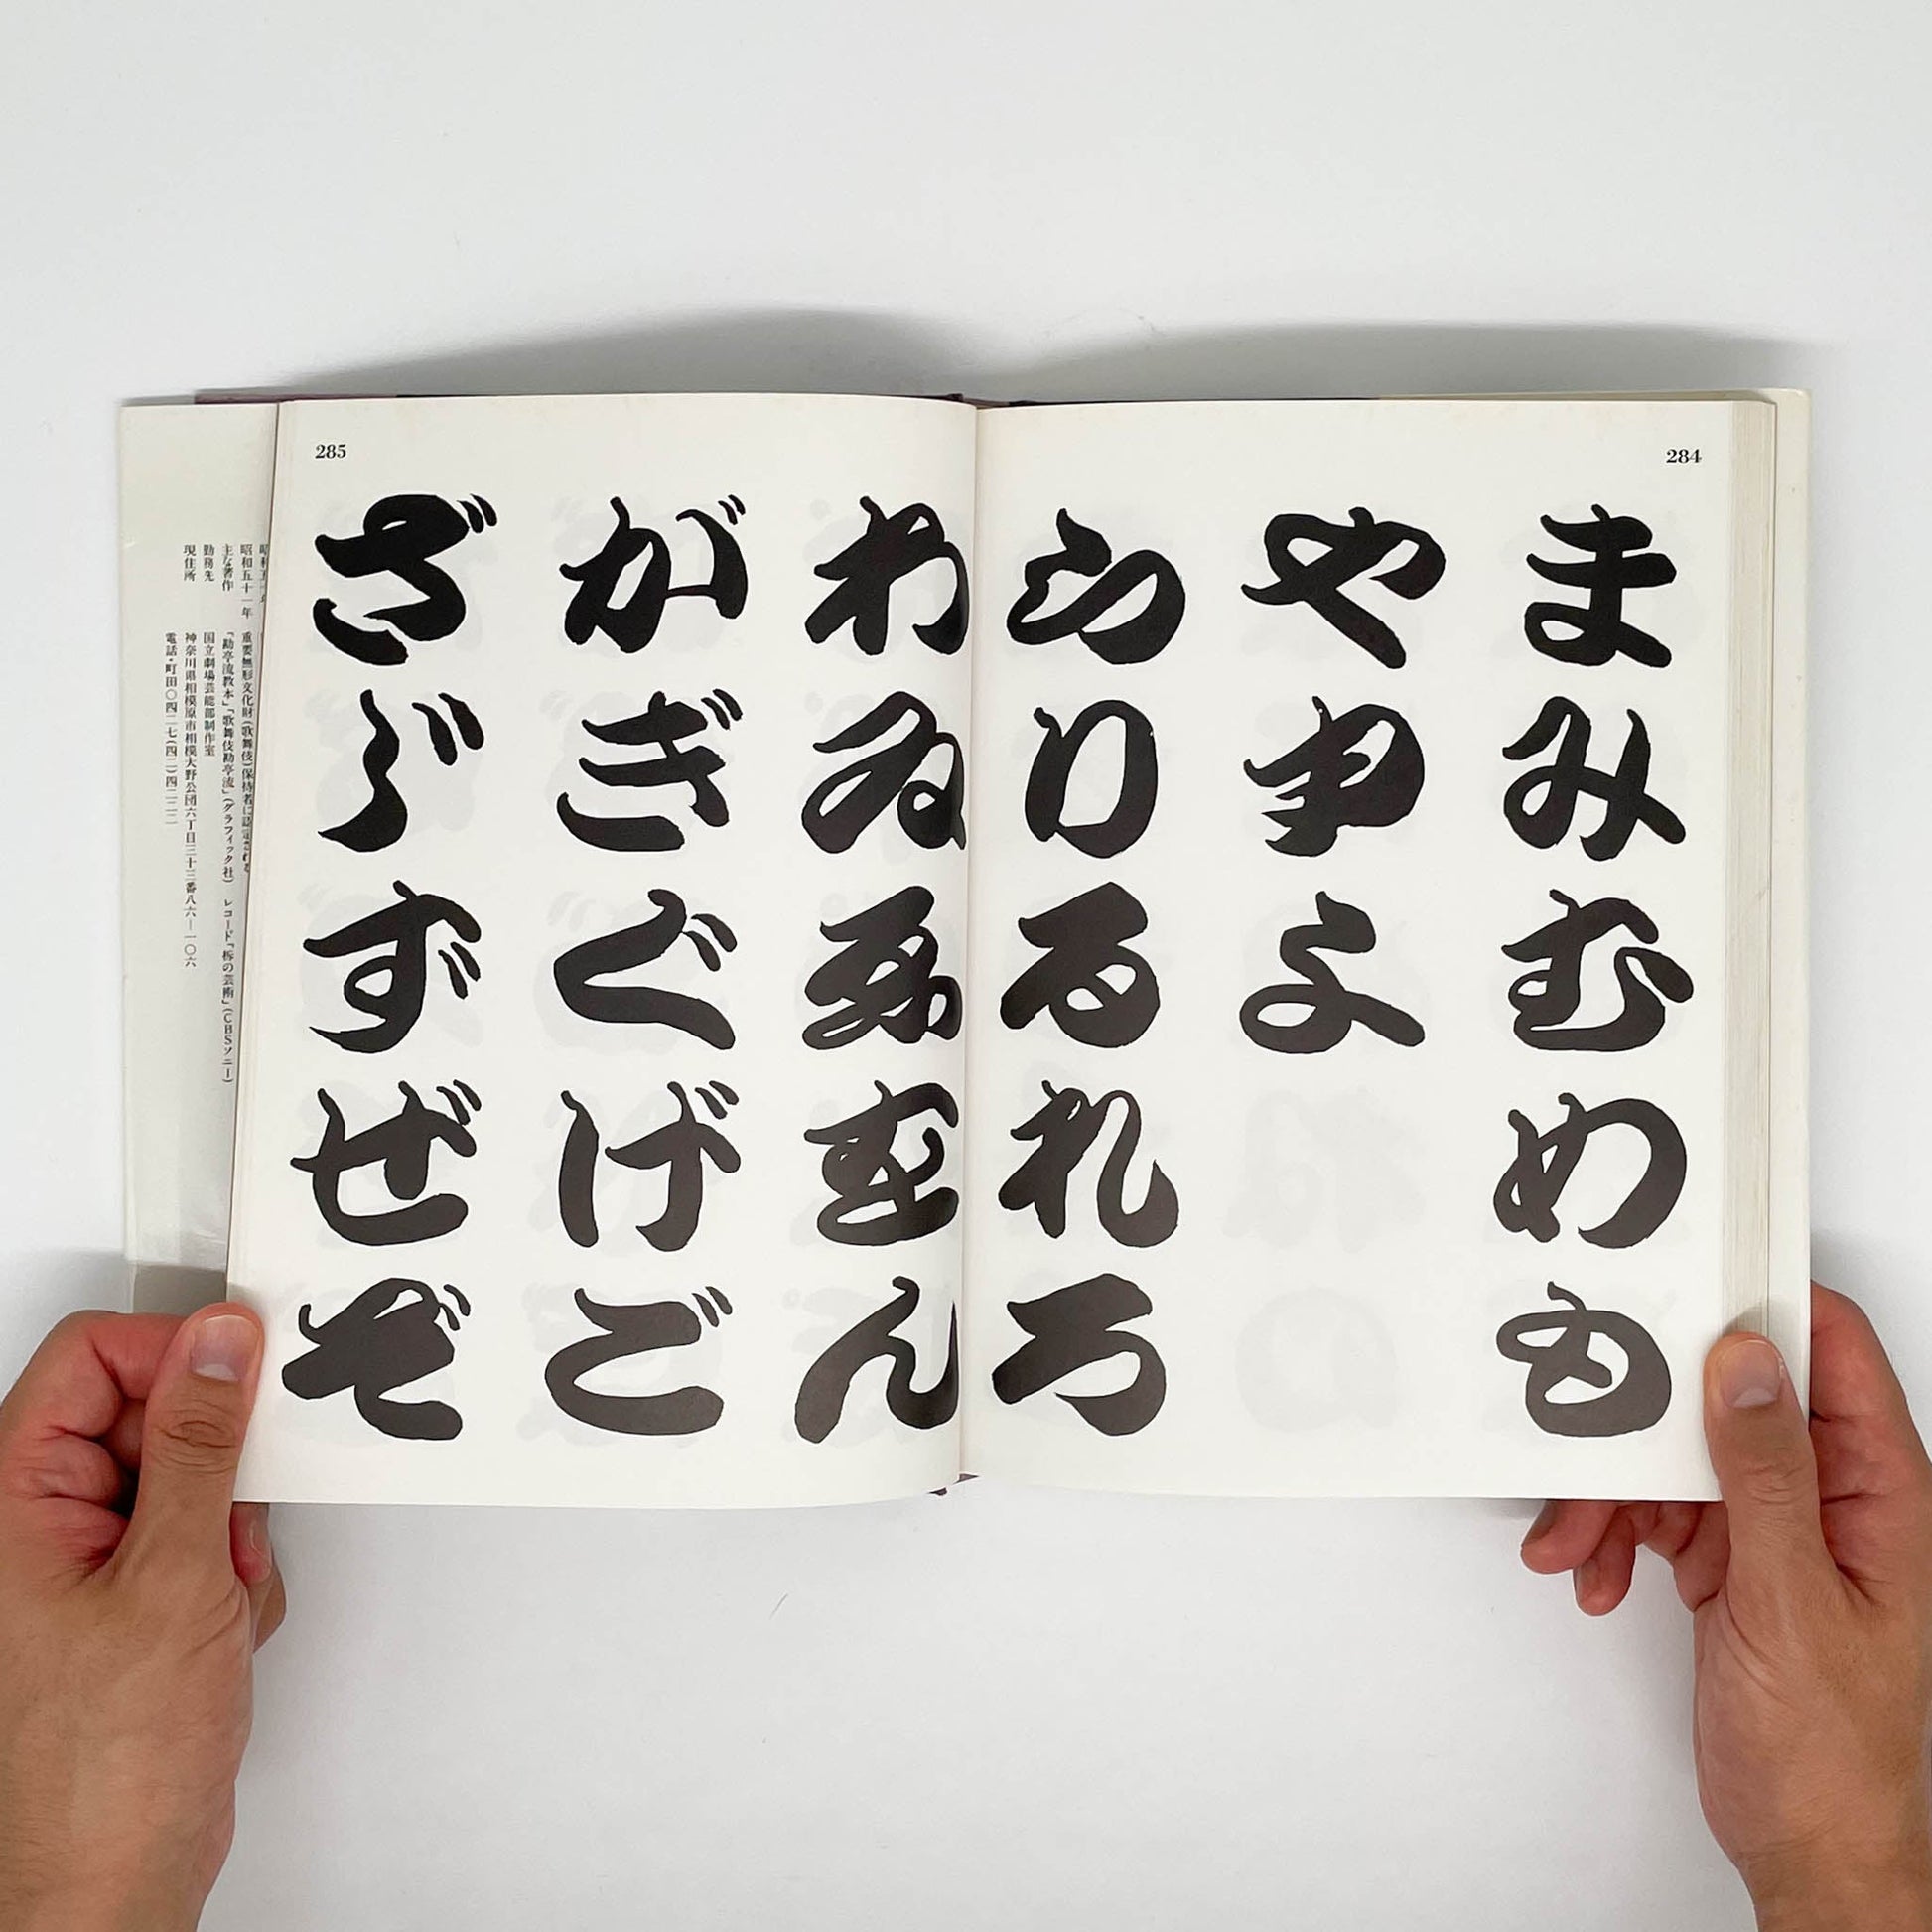 284
まみむめも
やゆよ
らりるれろ
285
わゐゑをん
がぎぐげご
ざじずぜぞ
昭和五十一年 重要無形文化財(歌舞伎)保持者に認定される
主な著作 「勘亭流教本」「歌舞伎勘亭流」(グラフィック社) レコード「柝の芸術」(CBSソニー)
勤務先 国立劇場芸能部制作室
現住所 神奈川県相模原市相模大野公団六丁目三十三番八六―一〇六
電話・町田〇四二七(四二)四二二二